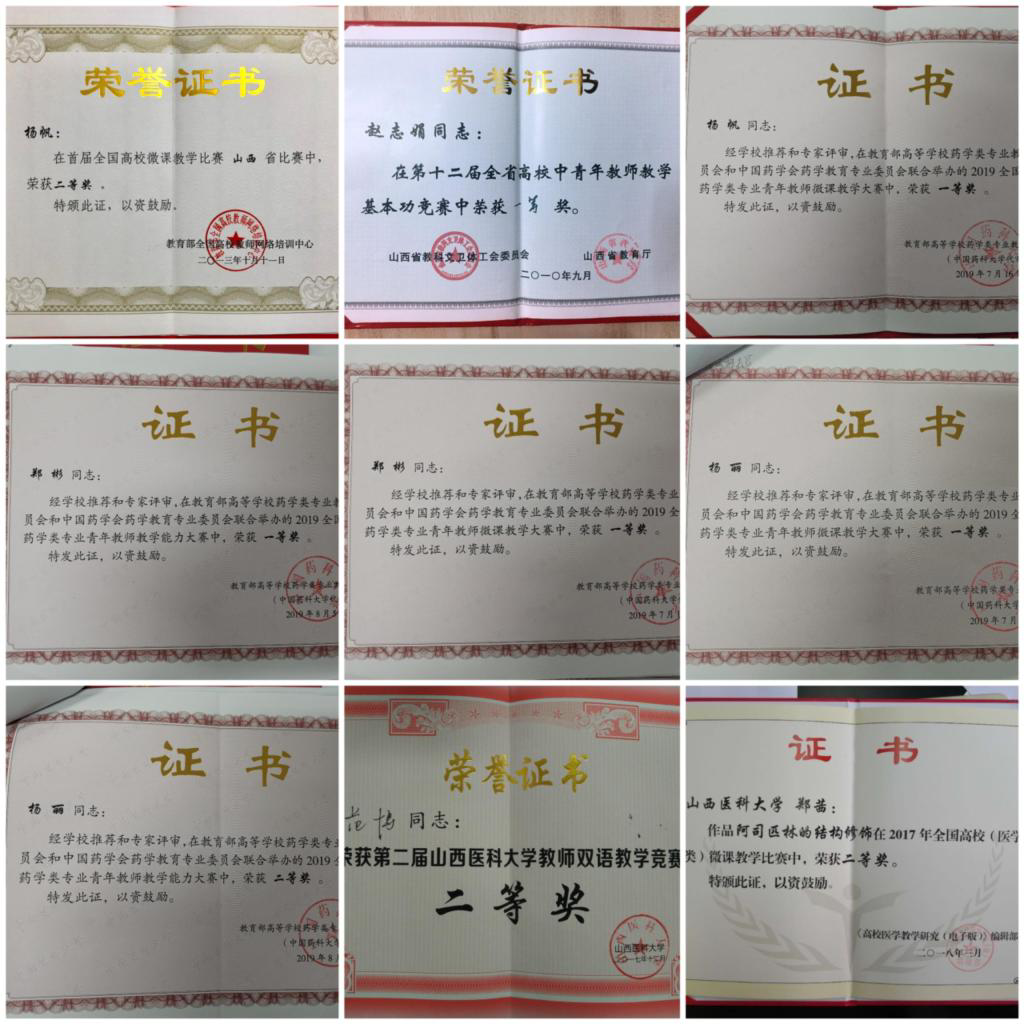 荣誉证书
杨帆：
在首届全国高校微课教学比赛 山西 省比赛中，
荣获二等奖 。
特颁此证，以资鼓励。
教育部全国高校教师网络培训中心
二〇一三年十月十一日
荣誉证书
赵志娟同志：
在第十二届全省高校中青年教师教学
基本功竞赛中荣获 一等 奖。
山西省教科文卫体工会委员会 山西省教育厅
二〇一〇年九月
证书
杨 帆 同志：
经学校推荐和专家评审，在教育部高等学校药学类专业教
员会和中国药学会药学教育专业委员会联合举办的 2019 全国
药学类专业青年教师微课教学大赛中，荣获 一等奖 。
特发此证，以资鼓励。
教育部高等学校药学类专业教
（中国药科大学代
2019 年 7 月 16
证书
郑 彬 同志：
经学校推荐和专家评审，在教育部高等学校药学类专业
员会和中国药学会药学教育专业委员会联合举办的 2019 全
药学类专业青年教师教学能力大赛中，荣获 一等奖 。
特发此证，以资鼓励。
教育部高等学校药学类专业
（中国药科大学
2019 年 8 月
证书
郑 彬 同志：
经学校推荐和专家评审，在教育部高等学校药学类专业
员会和中国药学会药学教育专业委员会联合举办的 2019 全
药学类专业青年教师微课教学大赛中，荣获 一等奖 。
特发此证，以资鼓励。
教育部高等学校药学类专业
（中国药科大学
2019 年 7 月
证书
杨 丽 同志：
经学校推荐和专家评审，在教育部高等学校药学类专业
员会和中国药学会药学教育专业委员会联合举办的 2019 全国
药学类专业青年教师微课教学大赛中，荣获 一等奖 。
特发此证，以资鼓励。
教育部高等学校药学类专
（中国药科大
2019 年 7 月
证书
杨 丽 同志：
经学校推荐和专家评审，在教育部高等学校药学类专业教
员会和中国药学会药学教育专业委员会联合举办的 2019
药学类专业青年教师教学能力大赛中，荣获 二等奖 。
特发此证，以资鼓励。
教育部高等学校药学类
（中国药科
2019 年 8
荣誉证书
范博 同志：
荣获第二届山西医科大学教师双语教学竞赛
二等奖
山西医科大学
二〇一七年十二月
证书
山西医科大学 郑茜：
作品阿司匹林的结构修饰在 2017 年全国高校（医学
类）微课教学比赛中，荣获二等奖。
特颁此证，以资鼓励。
《高校医学教学研究（电子版）》编辑部
二〇一八年三月